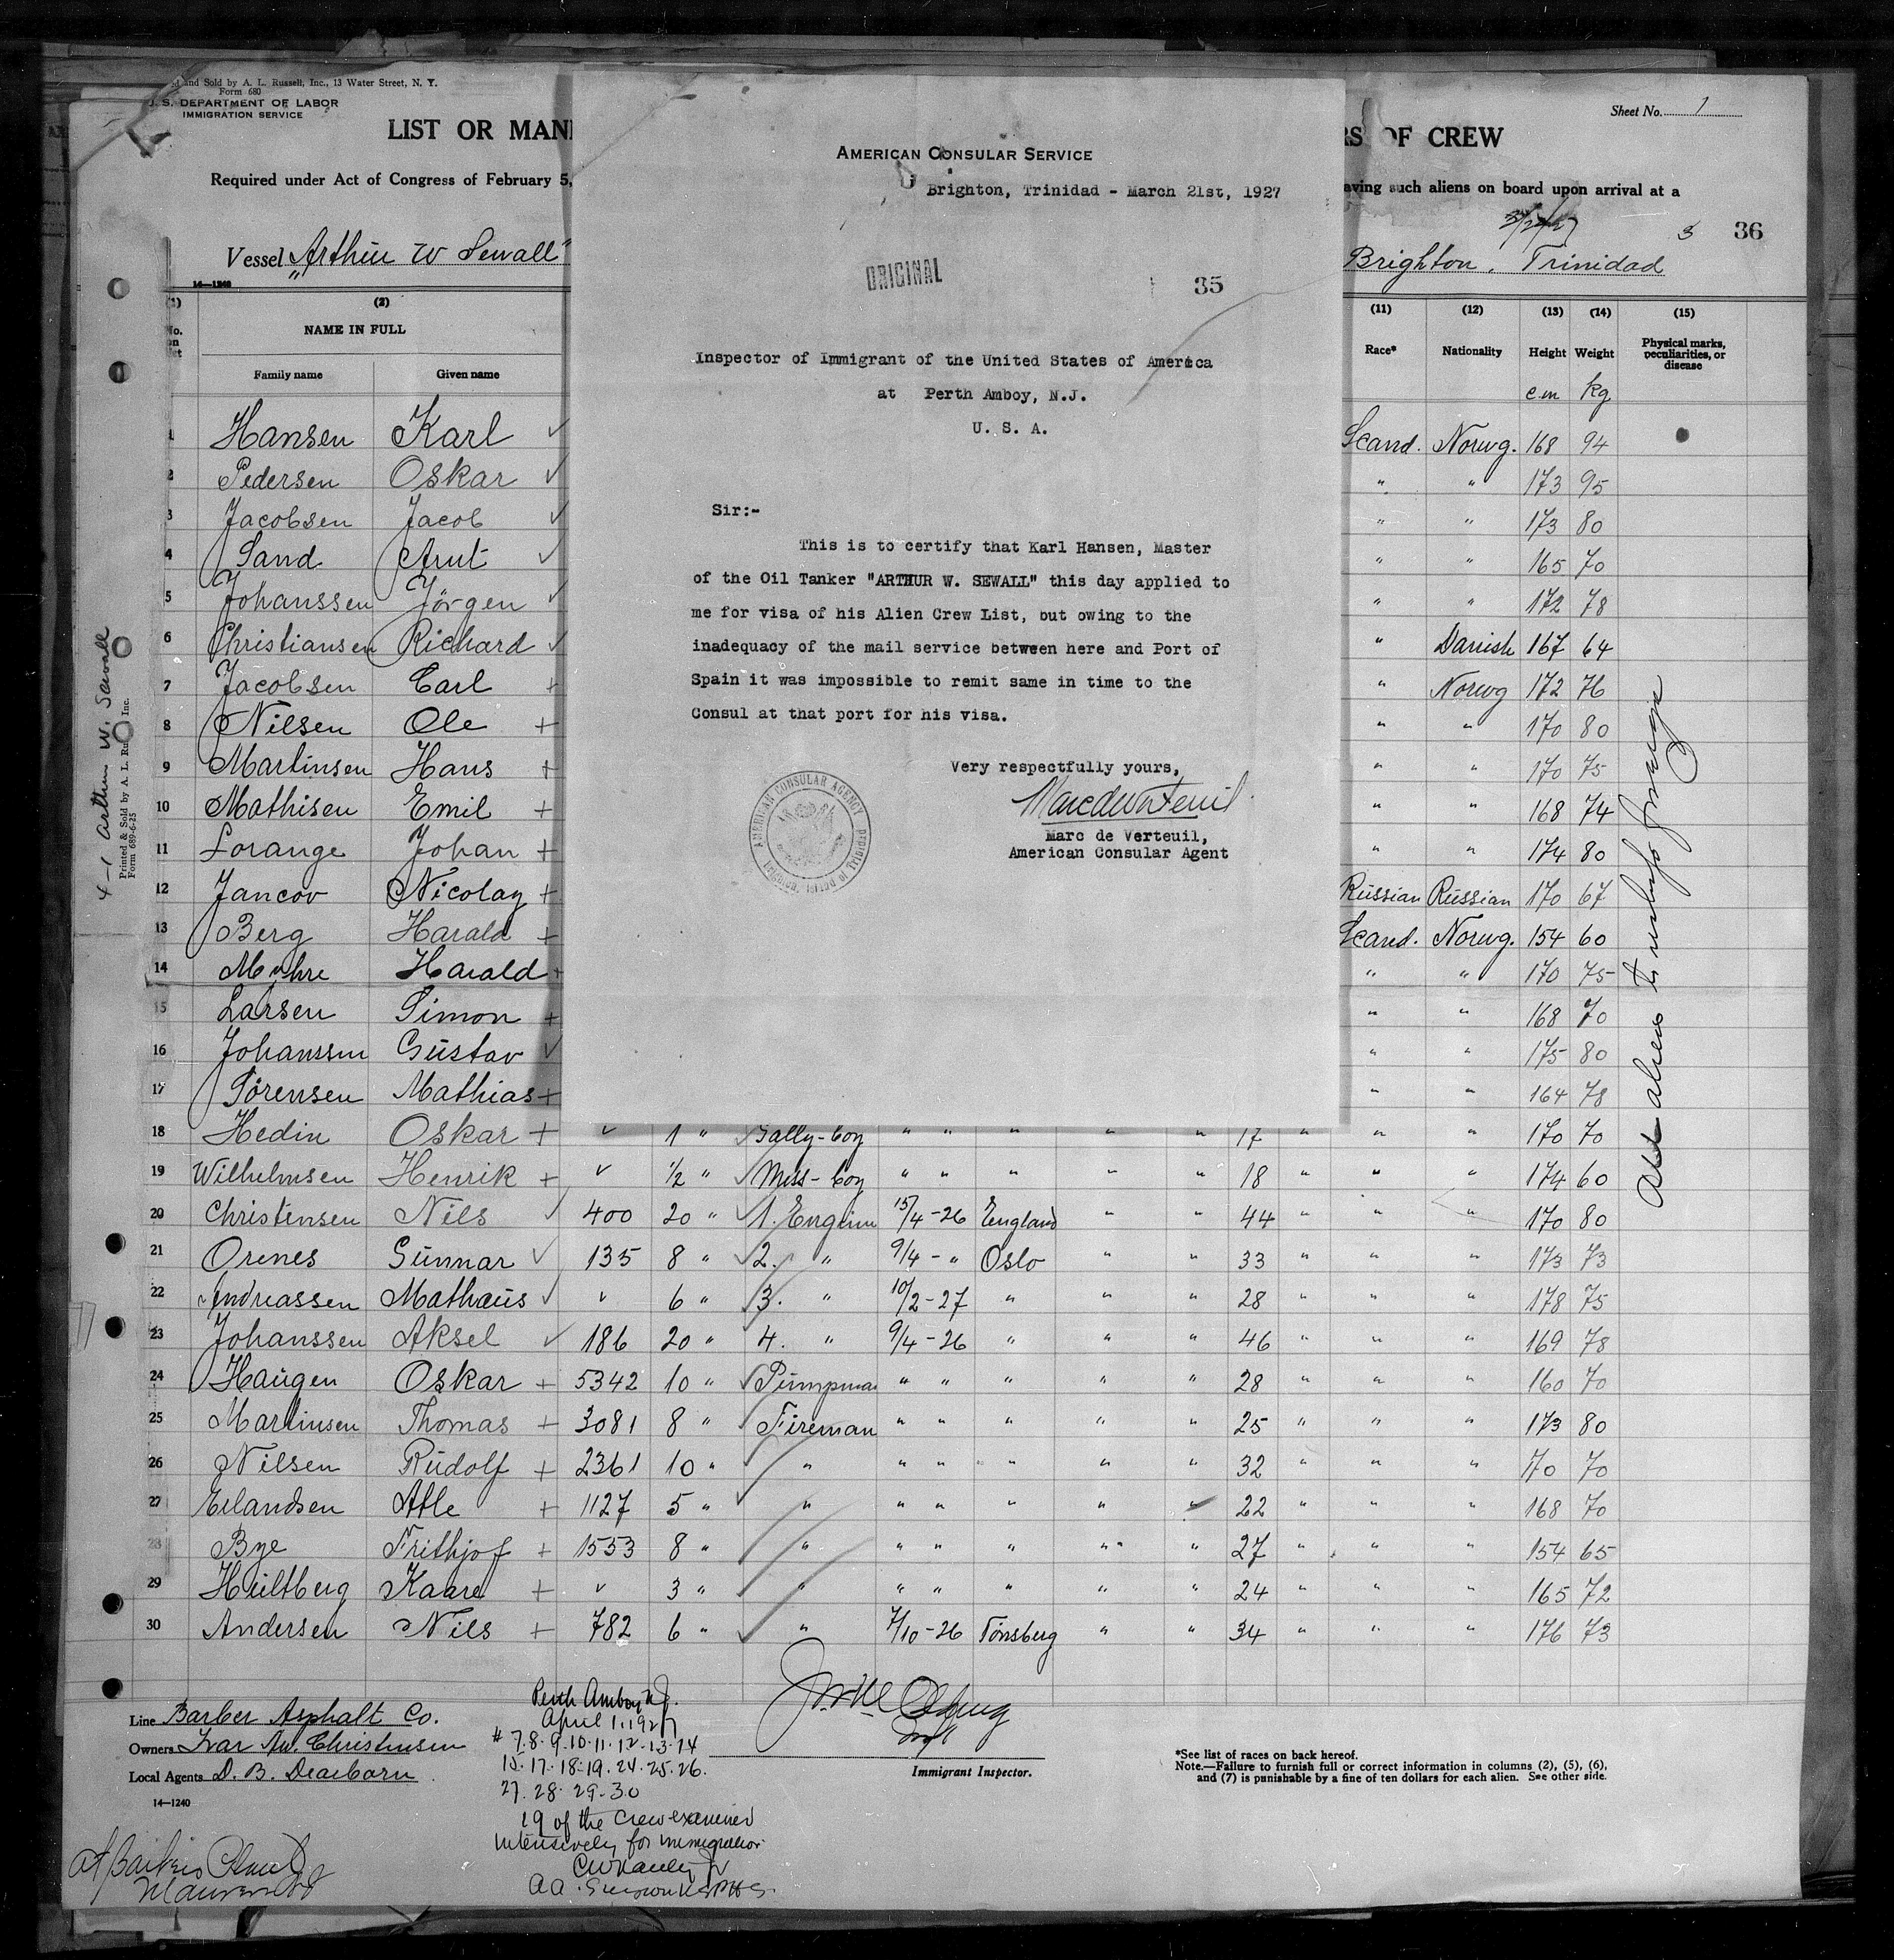 and Sold by A. L. Russell, Inc., 13 Water Street, N. Y.
Form 680
U. S. DEPARTMENT OF LABOR
IMMIGRATION SERVICE
Sheet No. 1
LIST OR MAN
RS OF CREW
Required under Act of Congress of February 5,
aving such aliens on board upon arrival at a
36
Vessel "Arthur W Sewall"
Brighton, Trinidad
14—1240
AMERICAN CONSULAR SERVICE
Brighton, Trinidad - March 21st, 1927
ORIGINAL
35
Inspector of Immigrant of the United States of America
at Perth Amboy, N.J.
U. S. A.
Sir:-
This is to certify that Karl Hansen, Master
of the Oil Tanker "ARTHUR W. SEWALL" this day applied to
me for visa of his Alien Crew List, but owing to the
inadequacy of the mail service between here and Port of
Spain it was impossible to remit same in time to the
Consul at that port for his visa.
Very respectfully yours,
Marc de Verteuil
Marc de Verteuil,
American Consular Agent
AMERICAN CONSULAR AGENCY
(1) (2) (11) (12) (13) (14) (15)
No. on list NAME IN FULL Race* Nationality Height Weight Physical marks, peculiarities, or disease
Family name Given name
cm kg
1 Hansen Karl ✓ Scand. Norwg. 168 94
2 Pedersen Oskar ✓ " " 173 95
3 Jacobsen Jacob ✓ " " 173 80
4 Sand Arnt ✓ " " 165 70
5 Johanssen Jörgen ✓ " " 172 78
6 Christiansen Richard ✓ " Danish 167 64
7 Jacobsen Carl + " Norwg 172 76
8 Nilsen Ole + " " 170 80
9 Martinsen Hans + " " 170 75
10 Mathisen Emil + " " 168 74
11 Lorange Johan + " " 174 80
12 Jancov Nicolay + Russian Russian 170 67
13 Berg Harald + Scand. Norwg. 154 60
14 Myhre Harald + " " 170 75
15 Larsen Simon + " " 168 70
16 Johanssen Gustav ✓ " " 175 80
17 Sörensen Mathias + " " 164 78
18 Hedin Oskar + ✓ 1 " ✓ Gally-boy " " " " " 17 " " " 170 70
19 Wilhelmsen Henrik + ✓ 1/2 " ✓ Mess-boy " " " " " 18 " " " 174 60
20 Christensen Nils ✓ 400 20 " ✓ 1. Engine 15/4-26 England " " 44 " " " 170 80
21 Orenes Gunnar ✓ 135 8 " ✓ 2. " 9/4 - " Oslo " " 33 " " " 173 73
22 Andreassen Mathæus ✓ ✓ 6 " ✓ 3. " 10/2-27 " " " 28 " " " 178 75
23 Johanssen Aksel ✓ 186 20 " 4. " 9/4-26 " " " 46 " " " 169 78
24 Haugen Oskar + 5342 10 " ✓ Pumpman " " " " " 28 " " " 160 70
25 Martinsen Thomas + 3081 8 " ✓ Fireman " " " " " 25 " " " 173 80
26 Nilsen Rudolf + 2361 10 " ✓ " " " " " " 32 " " " 170 70
27 Erlandsen Atle + 1127 5 " ✓ " " " " " " 22 " " " 168 70
28 Bye Frithjof + 1553 8 " ✓ " " " " " " 27 " " " 154 65
29 Hultberg Kaare + ✓ 3 " ✓ " " " " " " 24 " " " 165 72
30 Andersen Nils + 782 6 " ✓ " 7/10-26 Tönsberg " " 34 " " " 176 73
4-1 Arthur W. Sewall
Printed & Sold by A. L. Ru Inc.
Form 689-6-25
Line Barber Asphalt Co.
Owners Ivar An. Christensen
Local Agents D. B. Dearborn
14—1240
Perth Amboy N.J.
April 1. 1927
# 7.8.9.10.11.12.13.14
15.17.18.19.24.25.26.
27.28.29.30
19 of the crew examined
intensively for immigration
Immigrant Inspector.
*See list of races on back hereof.
Note.—Failure to furnish full or correct information in columns (2), (5), (6),
and (7) is punishable by a fine of ten dollars for each alien. See other side.